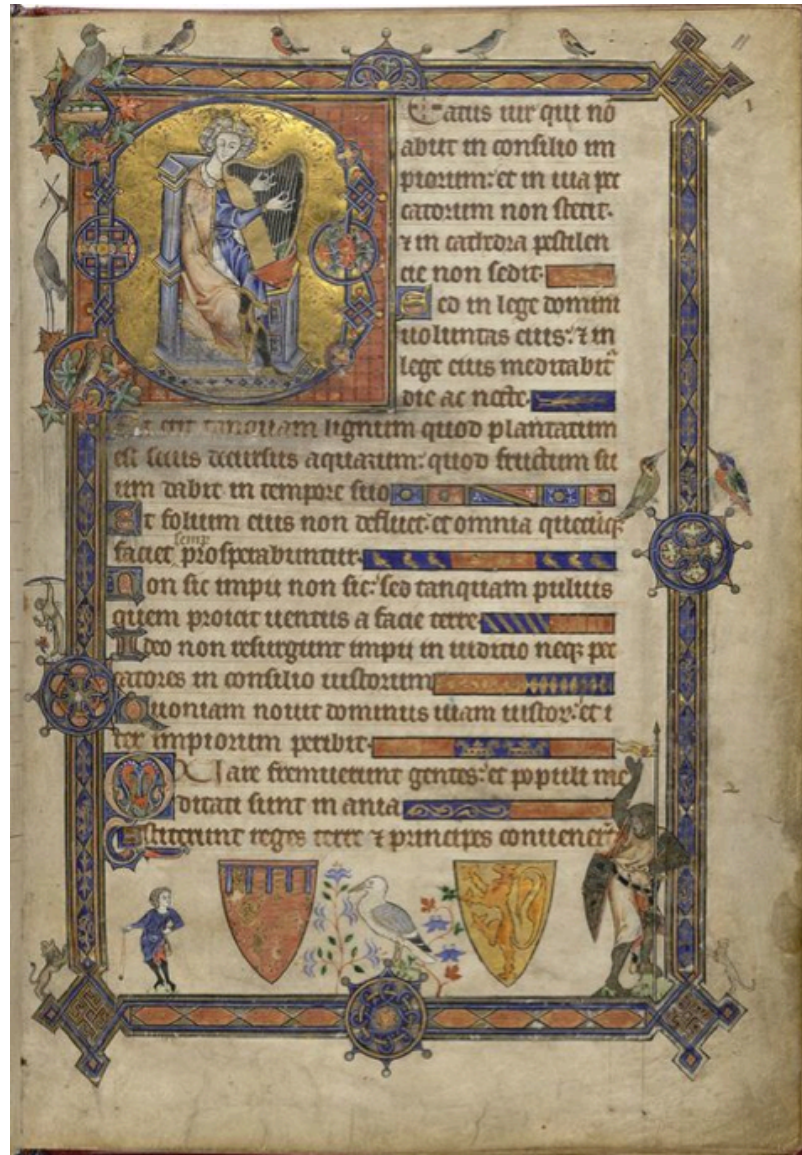 Beatus uir qui nõ
abiit in consilio im
piorum: et in uia pec
catorum non stetit.
⁊ in cathedra pestilen
cie non sedit.
Sed in lege domini
uoluntas eius: ⁊ in
lege eius meditabit᷑
die ac nocte.
Et erit tanquam lignum quod plantatum
est secus decursus aquarum: quod fructum su
um dabit in tempore suo
Et folium eius non defluet: et omnia quecũq;
semp
faciet prosperabuntur.
Non sic impii non sic: sed tanquam puluis
quem proicit uentus a facie terre.
Ideo non resurgunt impii in iuditio neq; pec
catores in consilio iustorum
Quoniam nouit dominus uiam iustor᷑: et i
ter impiorum peribit.
Quare fremuerunt gentes: et populi me
ditati sunt inania
Astiterunt reges terre ⁊ principes conuener᷑